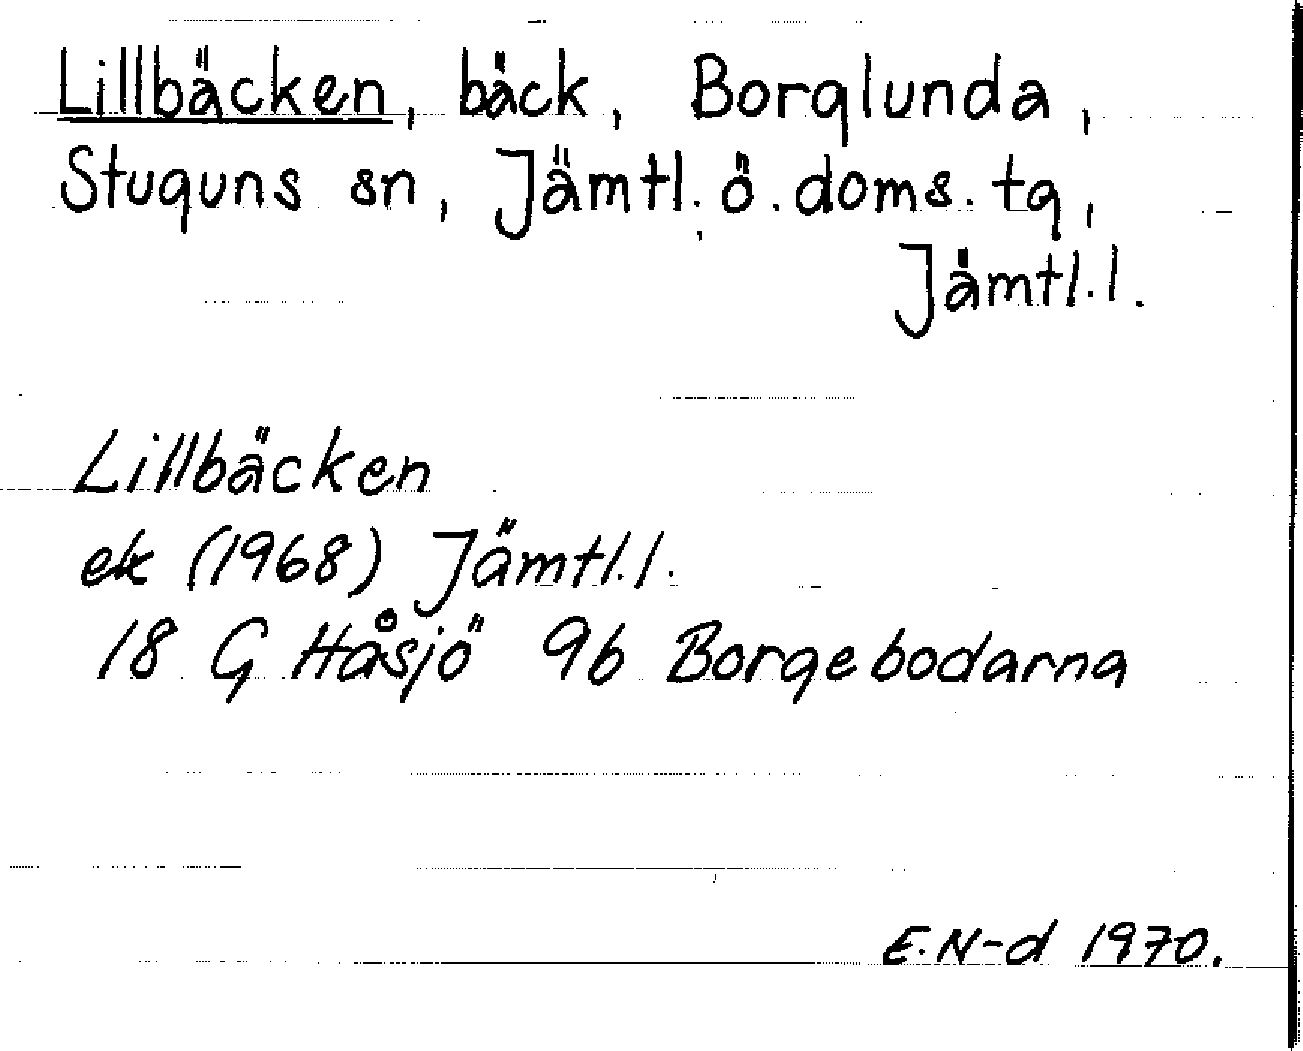 Lillbäcken, bäck, Borglunda,
Stuguns sn, Jämtl. ö. doms. tg,
Jämtl. l.
Lillbäcken
ek (1968) Jämtl. l.
18 G Håsjö 9b Borgebodarna
E. N-d 1970.